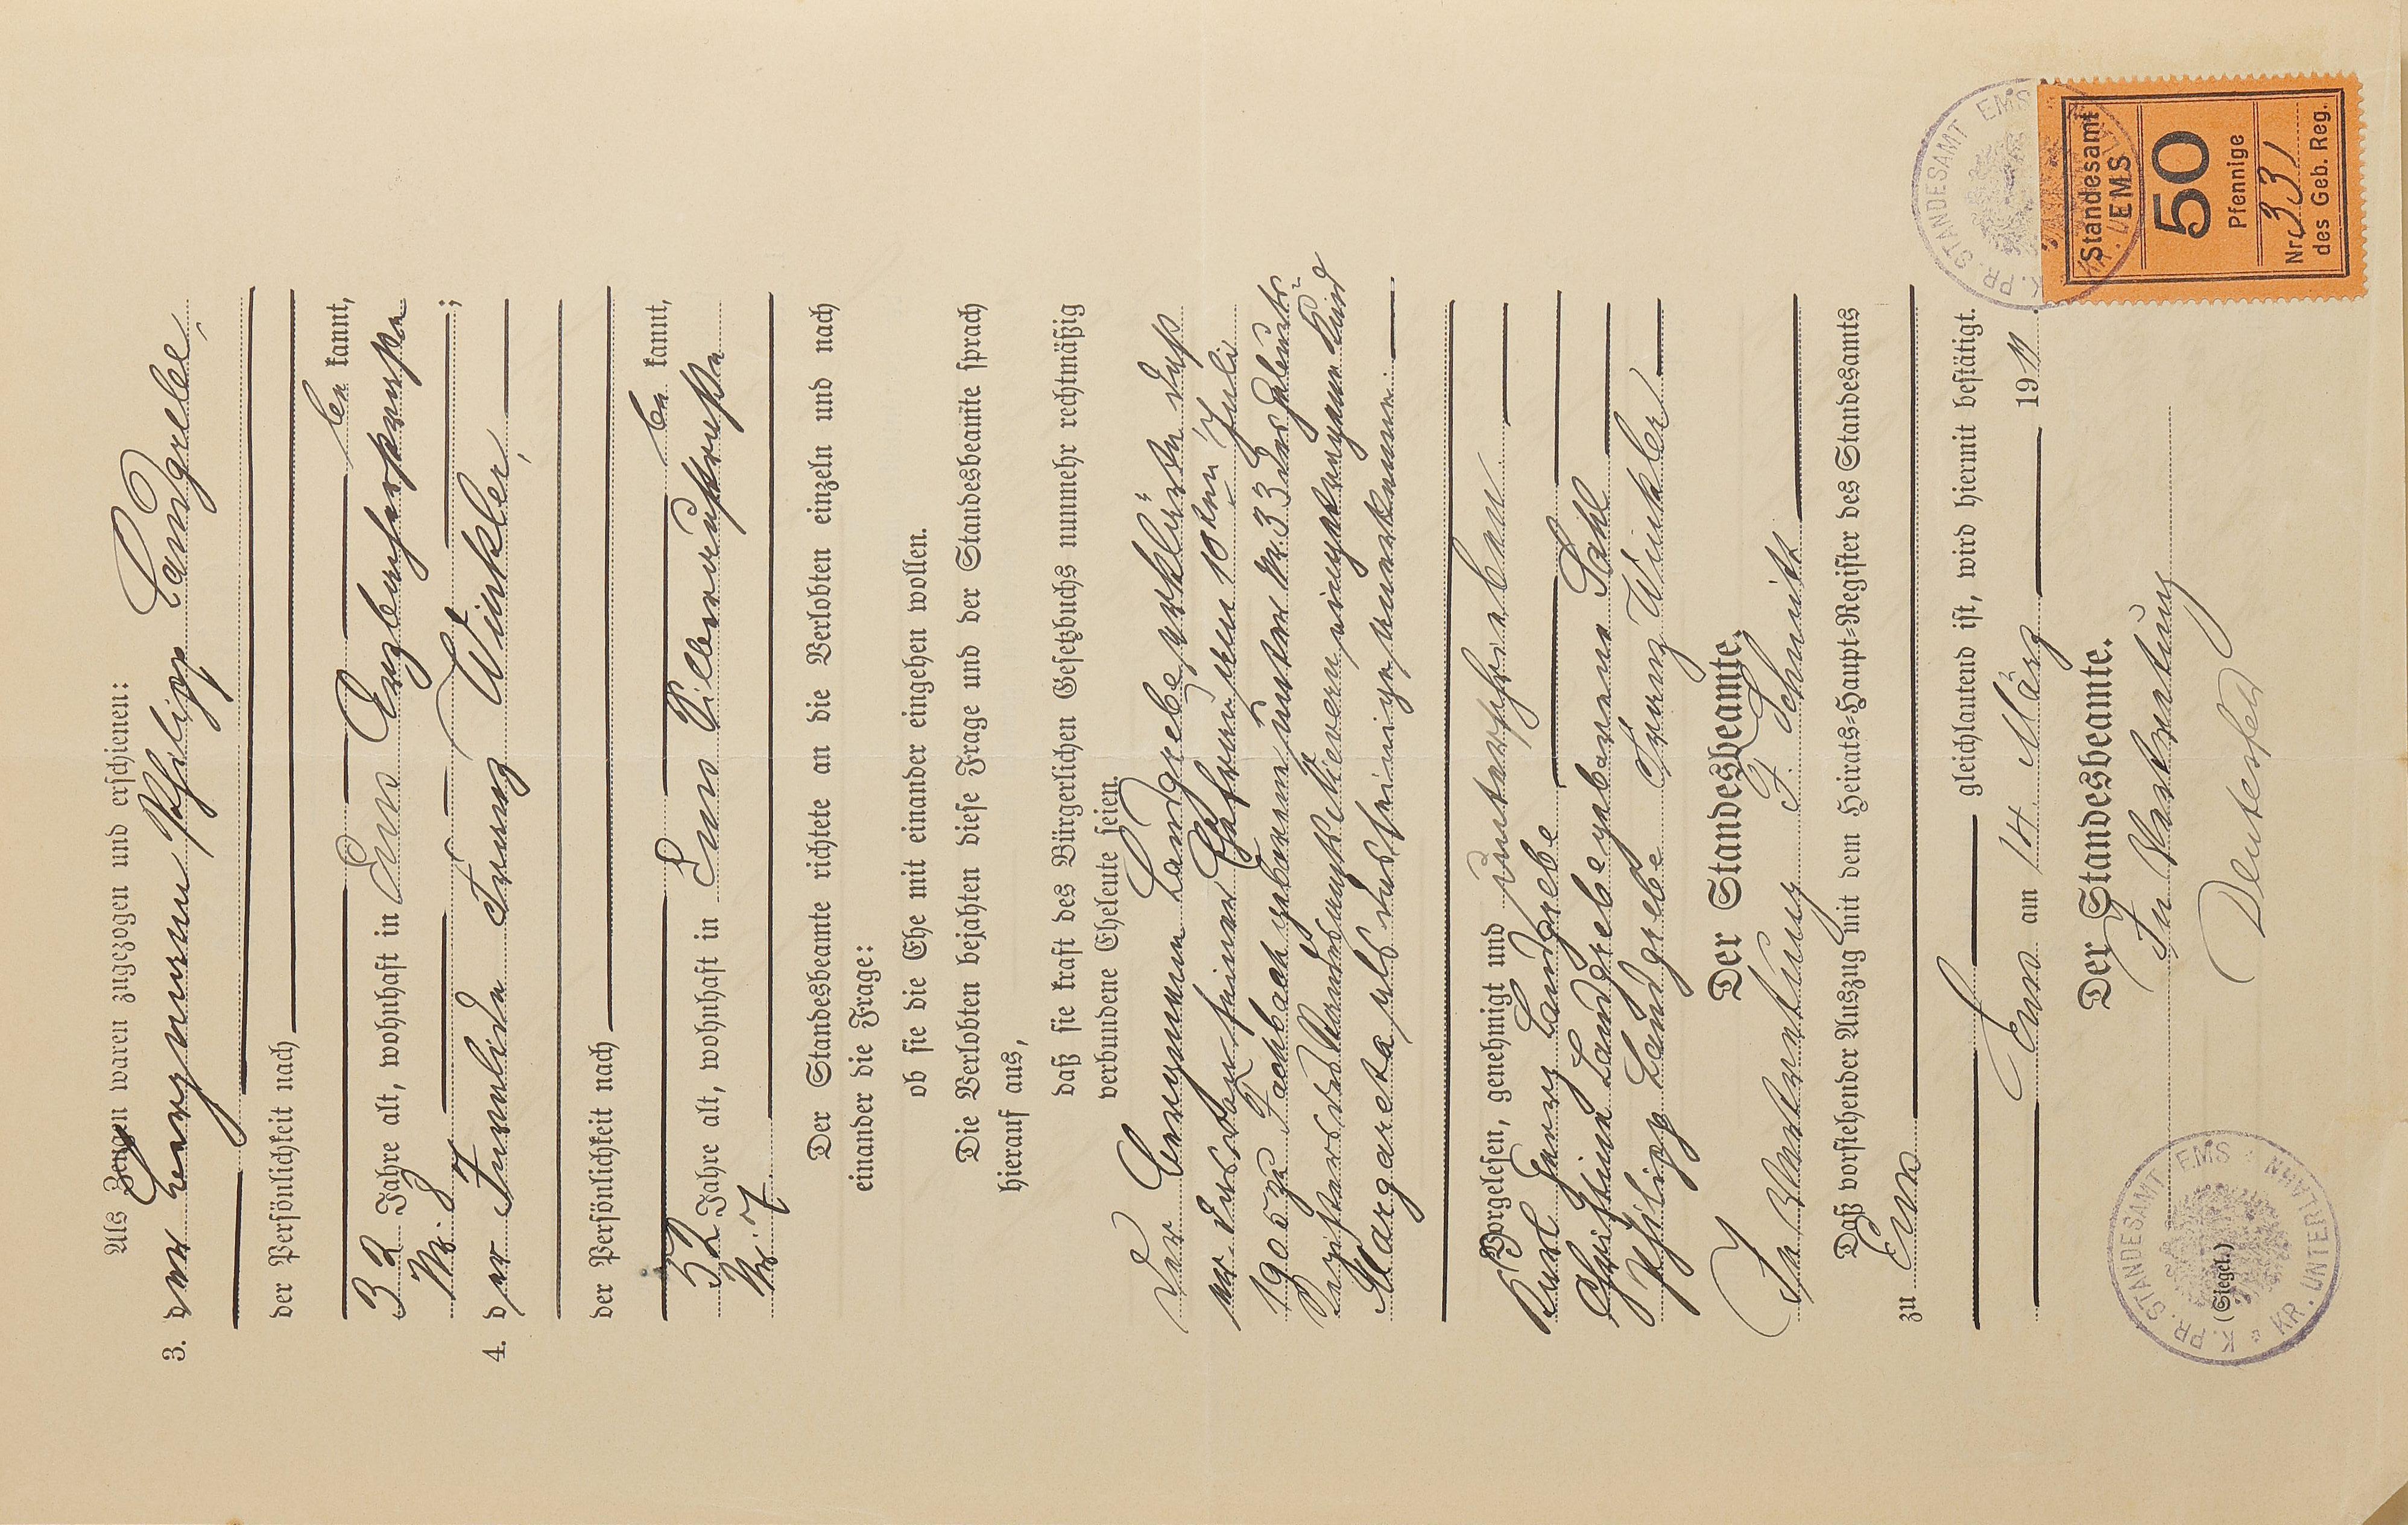 Als Zeugen waren zugezogen und erschienen:
3. der Bergmann Philipp Landgrebe,
der Persönlichkeit nach
be kannt,
32 Jahre alt, wohnhaft in Ems
Nr.
4. der Invalide Franz Winkler,
der Persönlichkeit nach
be kannt,
52 Jahre alt, wohnhaft in Ems Silberaustraße
Nr. 7
Der Standesbeamte richtete an die Verlobten einzeln und nach
einander die Frage:
ob sie die Ehe mit einander eingehen wollen.
Die Verlobten bejahten diese Frage und der Standesbeamte sprach
hierauf aus,
daß sie kraft des Bürgerlichen Gesetzbuchs nunmehr rechtmäßig
verbundene Eheleute seien.
Der Bergmann Landgrebe erklärte daß
er das von seiner Ehefrau am 10ten Juli
1905 zu Fachbach geborene unter Nr. 33 des Geburts-
Registers des Standesamts Nievern eingetragene Kind
Margareta als das seinige anerkenne.
Vorgelesen, genehmigt und unterschrieben
Karl Landgrebe
Christina Landgrebe geborene Sahl
Philipp Landgrebe Franz Winkler
Der Standesbeamte.
In Vertretung F. Schmitt
Daß vorstehender Auszug mit dem Heirats-Haupt-Register des Standesamts
zu Ems
gleichlautend ist, wird hiermit bestätigt.
Ems am 14. März 1911.
Der Standesbeamte.
In Vertretung
(Siegel.)
K. PR. STANDESAMT EMS KR. UNTERLAHN
K. PR. STANDESAMT EMS
Standesamt
EMS
50
Pfennige
Nr. 331
des Geb. Reg.